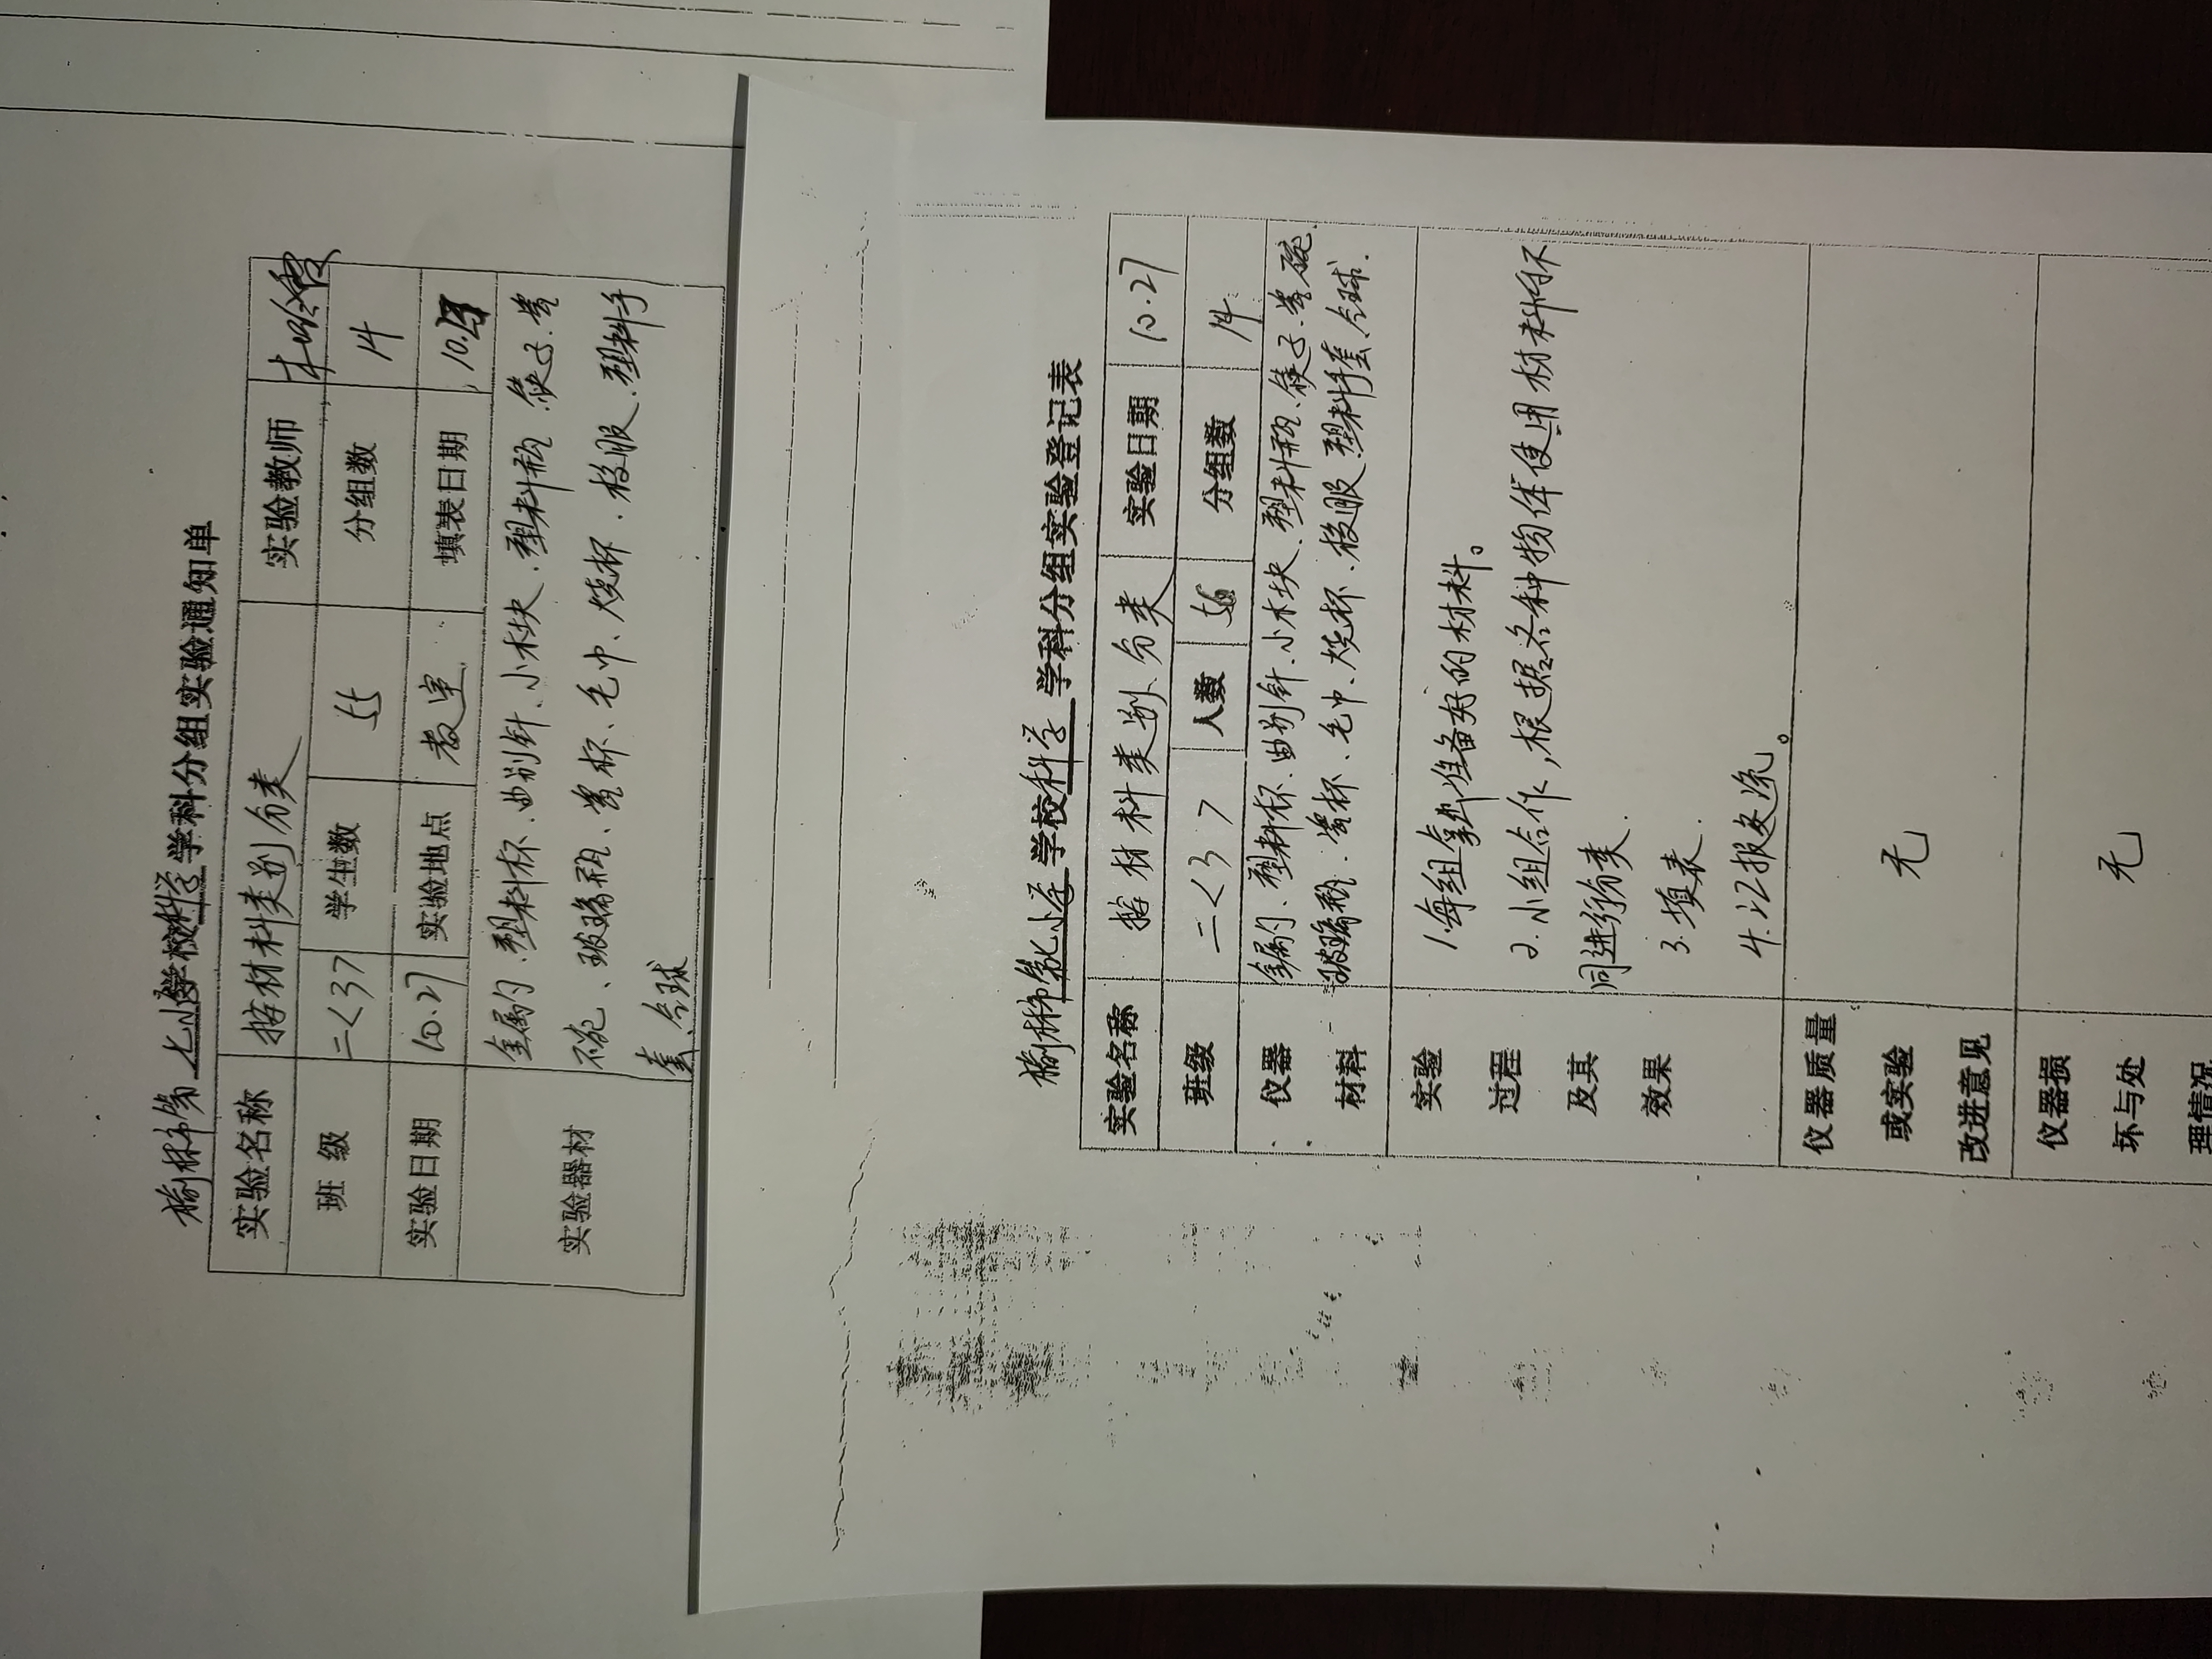 榆林市第七小学校科学学科分组实验通知单
实验名称 按材料类别分类 实验教师
班 级 二<3> 学生数 55 分组数 14
实验日期 10.27 实验地点 教室 填表日期 10.
实验器材
金属勺、塑料杯、曲别针、小木块、塑料瓶、筷子、瓷
碗、玻璃瓶、瓷杯、毛巾、烧杯、校服、塑料手
套、台球
榆林市第七小学 学校科学 学科分组实验登记表
实验名称 按材料类别分类 实验日期 10.27
班级 二<3> 人数 56 分组数 14
仪器
材料
金属勺、塑料杯、曲别针、小木块、塑料瓶、筷子、瓷碗、
玻璃瓶、瓷杯、毛巾、烧杯、校服、塑料手套、台球.
实验
过程
及其
效果
1.每组拿出准备好的材料。
2.小组合作,根据各种物体使用材料的不
同进行分类.
3.填表.
4.汇报交流。
仪器质量
或实验
改进意见
无
仪器损
坏与处
理情况
无